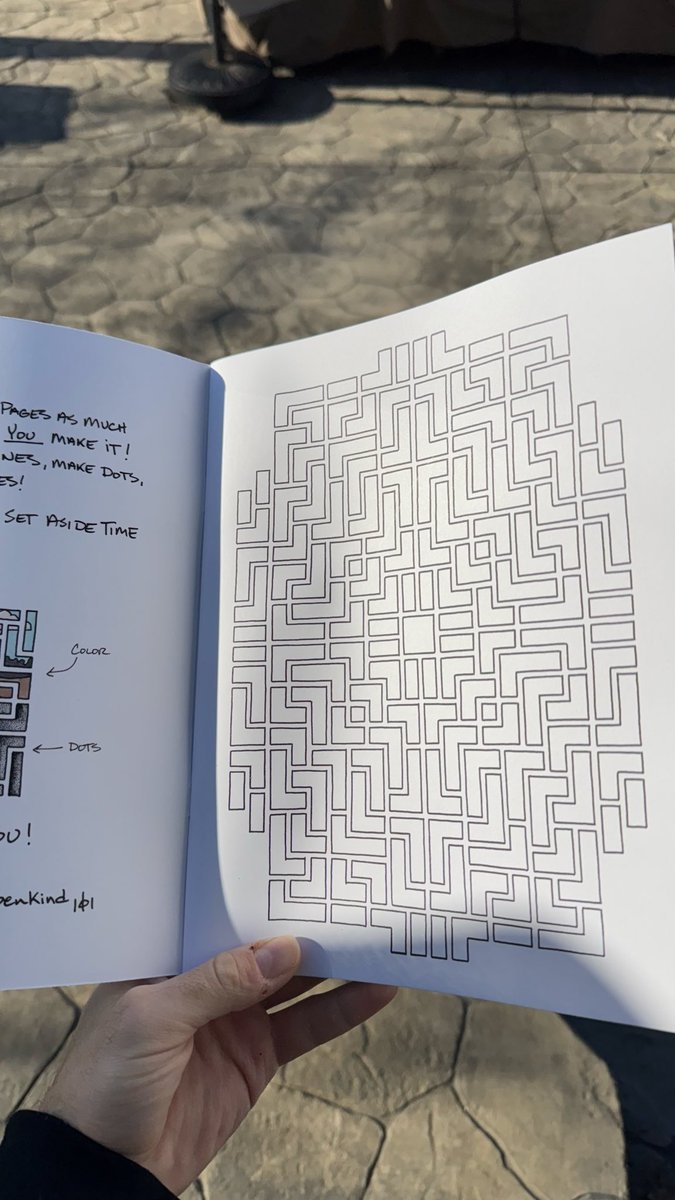 PAGES AS MUCH
YOU MAKE IT!
NES, MAKE DOTS,
ES!
SET ASIDE TIME
COLOR
DOTS
OU!
enKind